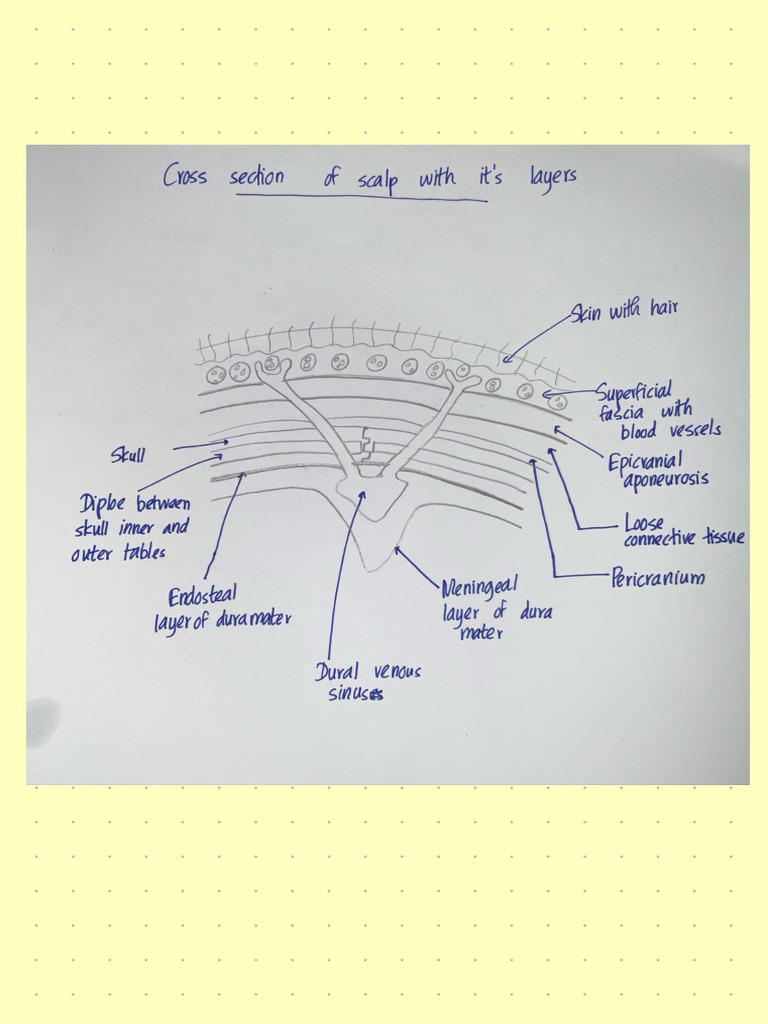 Cross section of scalp with it's layers
Skin with hair
Superficial
fascia with
blood vessels
Epicranial
aponeurosis
Loose
connective tissue
Pericranium
Skull
Diploe between
skull inner and
outer tables
Endosteal
layer of dura mater
Meningeal
layer of dura
mater
Dural venous
sinuses